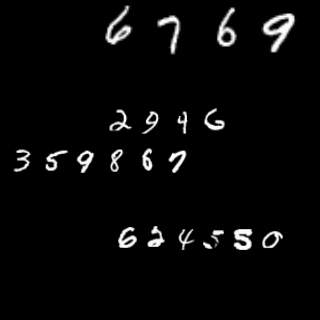 6769
2946
359867
624550